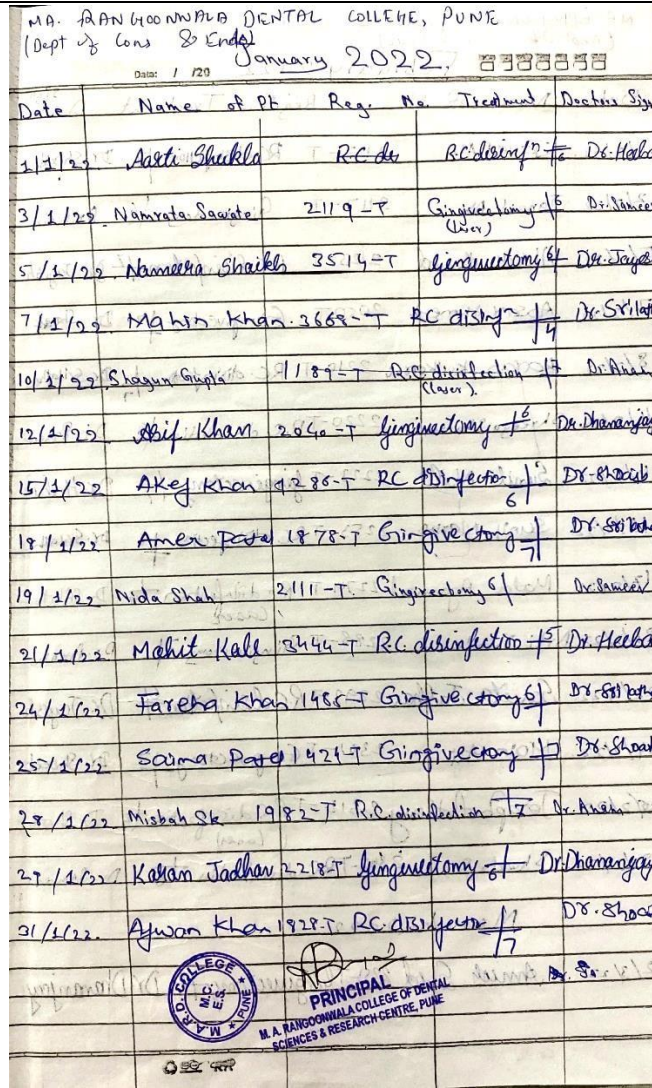 MA. RANGOONWALA DENTAL COLLEGE, PUNE
(Dept of Cons & Endo)
January 2022.
Date: / /20
Date Name of Pt Reg. No. Treatment Doctors Sign
1/1/22 Aarti Shukla R.C de R.C disinfⁿ 6 Dr. Heeba
3/1/22 Namrata Sawate 2119-T Gingivectomy 6 Dr. Sameer
(laser)
5/1/22 Nameera Shaikh 3514-T Gingivectomy 6 Dr. Jayes
7/1/22 Mahin Khan. 3668-T RC disinfⁿ 4 Dr. Srilat
10/1/22 Shagun Gupta 1189-T R.C disinfection 7 Dr. Anam
(laser)
12/1/22 Asif Khan 2040-T Gingivectomy 6 Dr. Dhananjay
15/1/22 Akef Khan 4286-T RC disinfection 6 Dr. Shoaib
18/1/22 Amer Patel 1878-T Gingivectomy 7 Dr. Srilatha
19/1/22 Nida Shah 2111-T. Gingivectomy 6 Dr. Sameer
21/1/22 Mohit Kale 3444-T R.C. disinfection 5 Dr. Heeba
24/1/22 Fareha Khan 1485-T Gingivectomy 6 Dr. Srilatha
25/1/22 Saima Patel 1424-T Gingivectomy 7 Dr. Shoaib
28/1/22 Misbah Sk 1982-T R.C. disinfection 7 Dr. Anam
29/1/22 Karan Jadhav 2218-T Gingivectomy 6 Dr. Dhananjay
31/1/22. Ajwan Khan 1928-T RC disinfection 7 Dr. Shoaib
M.A.R.D. COLLEGE PUNE
M.C.E.S.
PRINCIPAL
M. A. RANGOONWALA COLLEGE OF DENTAL
SCIENCES & RESEARCH CENTRE, PUNE